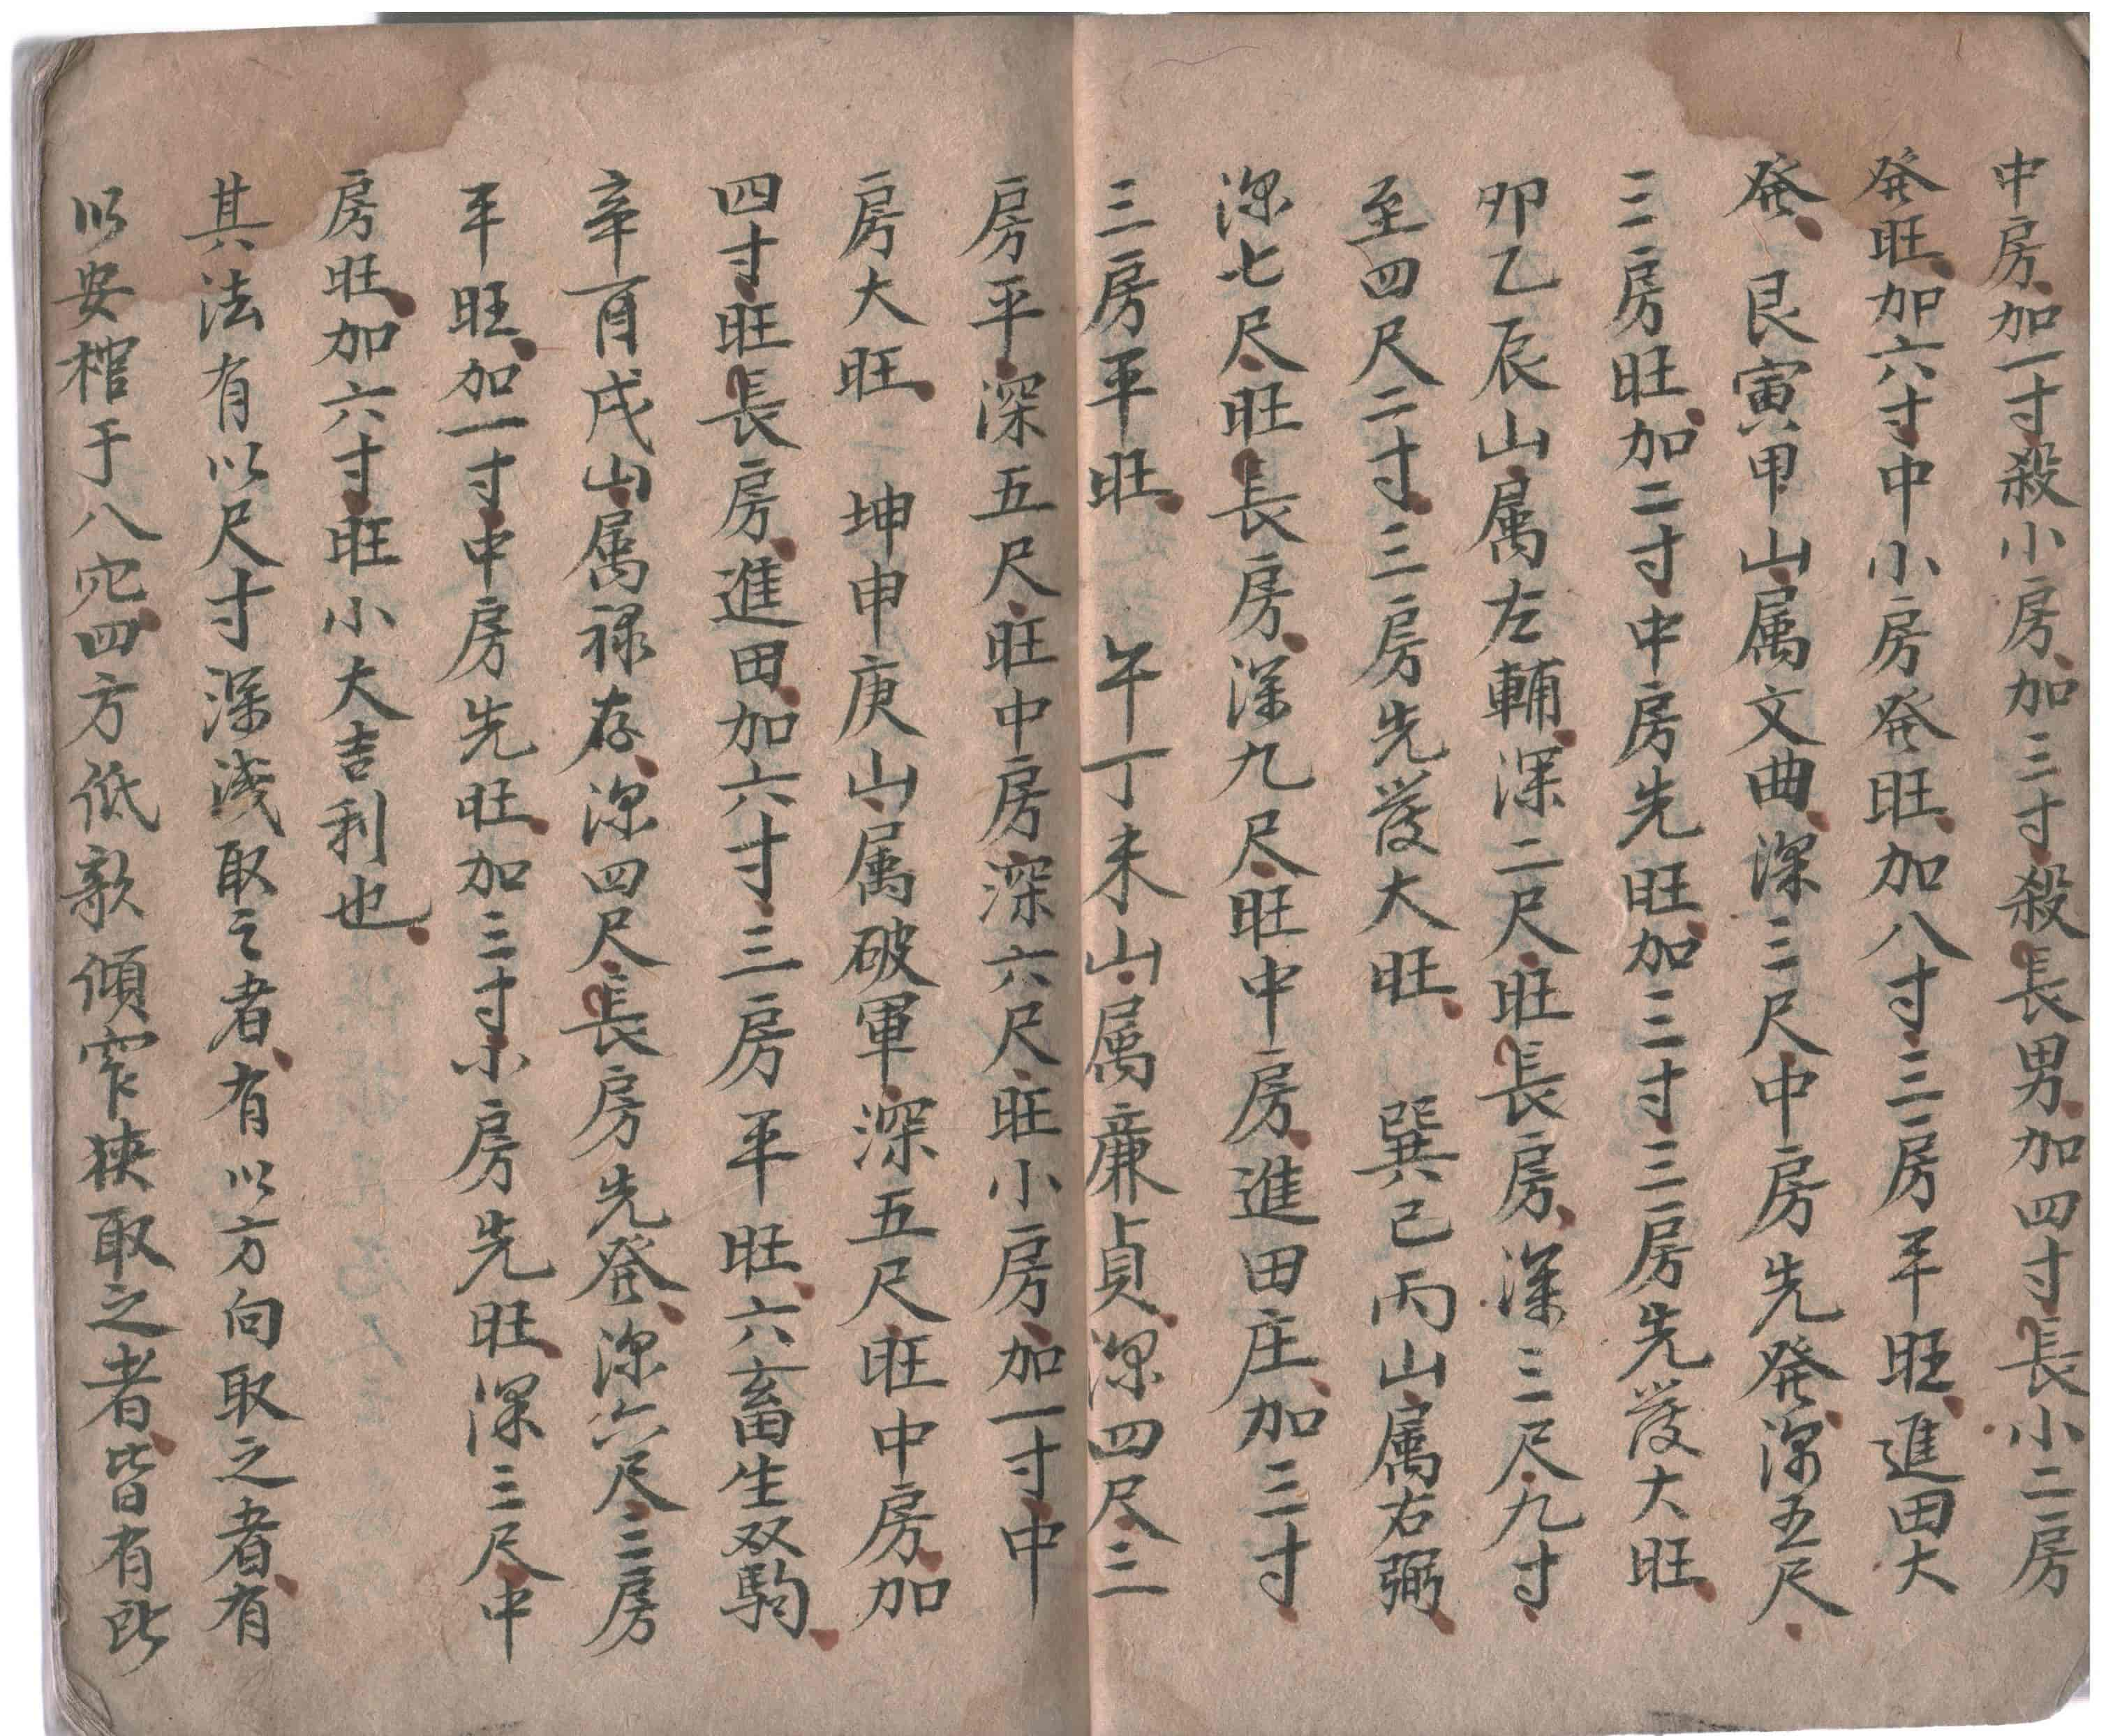 中房加一寸殺小房加三寸殺長男加四寸長小二房
発旺加六寸中小房発旺加八寸三房平旺進田大
発 艮寅甲山属文曲深三尺中房先発深五尺
三房旺加二寸中房先旺加三寸三房先發大旺
卯乙辰山属左輔深二尺旺長房深三尺九寸
至四尺二寸三房先發大旺 巽巳丙山属右弼
深七尺旺長房深九尺旺中房進田庄加三寸
三房平旺 午丁未山属廉貞深四尺三
房平深五尺旺中房深六尺旺小房加一寸中
房大旺 坤申庚山属破軍深五尺旺中房加
四寸旺長房進田加六寸三房平旺六畜生双駒
辛酉戌山属禄存深四尺長房先発深六尺三房
平旺加一寸中房先旺加三寸小房先旺深三尺中
房旺加六寸旺小大吉利也
其法有以尺寸深浅取之者有以方向取之者有
以安棺于八穴四方低欹傾窄狹取之者皆有此